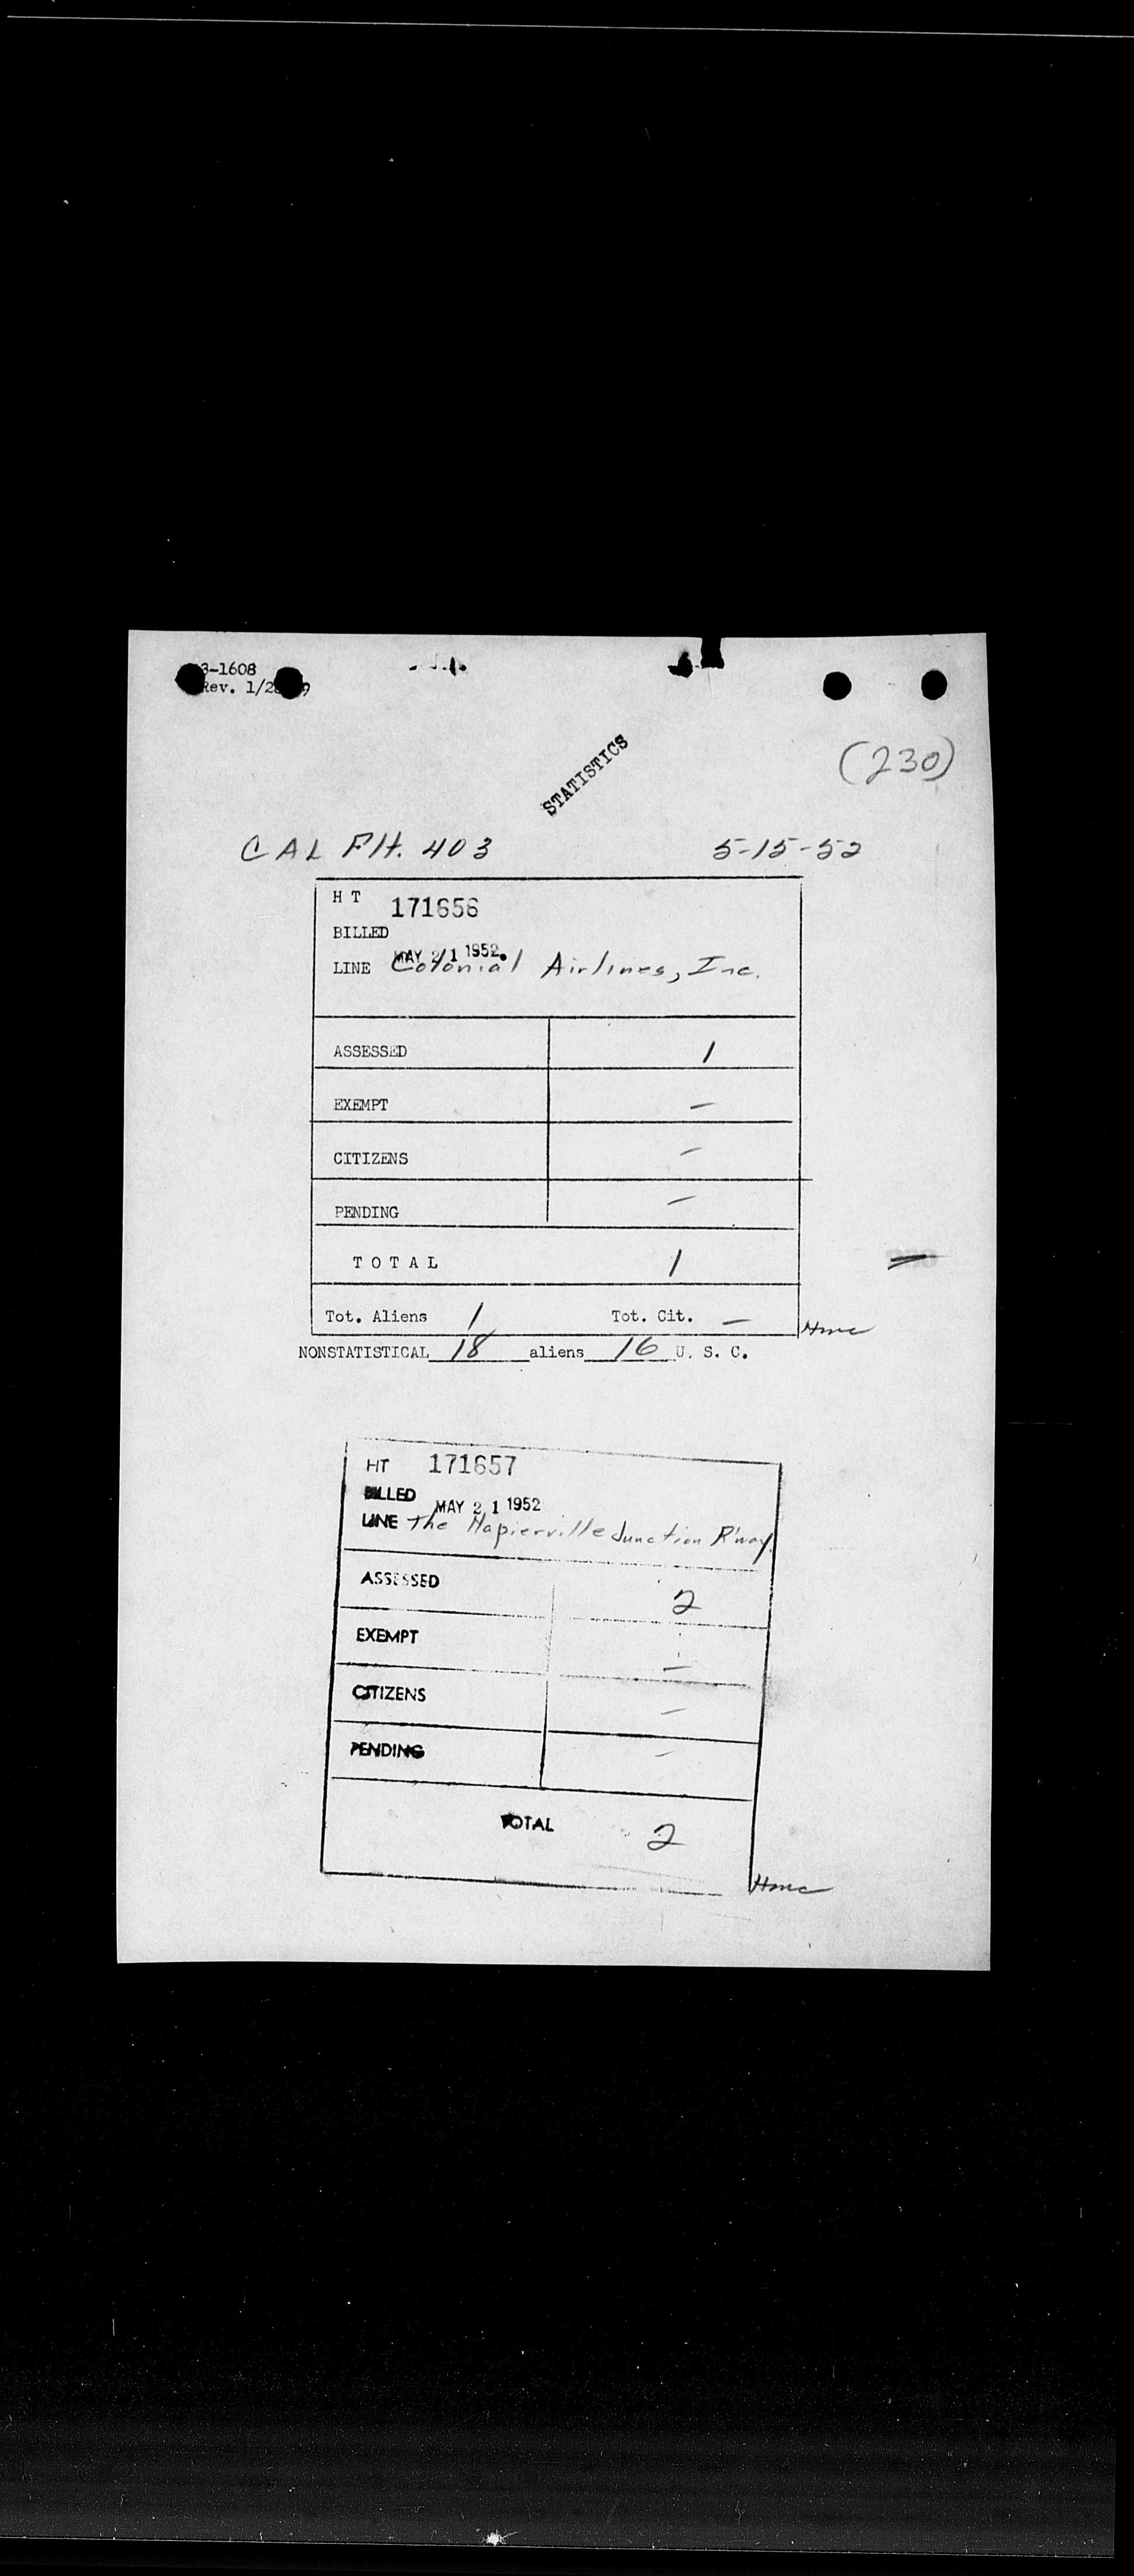 3-1608
Rev. 1/2
STATISTICS
(230)
CAL Flt. 403 5-15-52
H T 171656
BILLED MAY 21 1952
LINE Colonial Airlines, Inc.
ASSESSED 1
EXEMPT —
CITIZENS —
PENDING —
T O T A L 1
Tot. Aliens 1 Tot. Cit. —
NONSTATISTICAL 18 aliens 16 U. S. C.
HT 171657
BILLED MAY 21 1952
LINE The Napierville Junction R'way.
ASSESSED 2
EXEMPT —
CITIZENS —
PENDING —
TOTAL 2